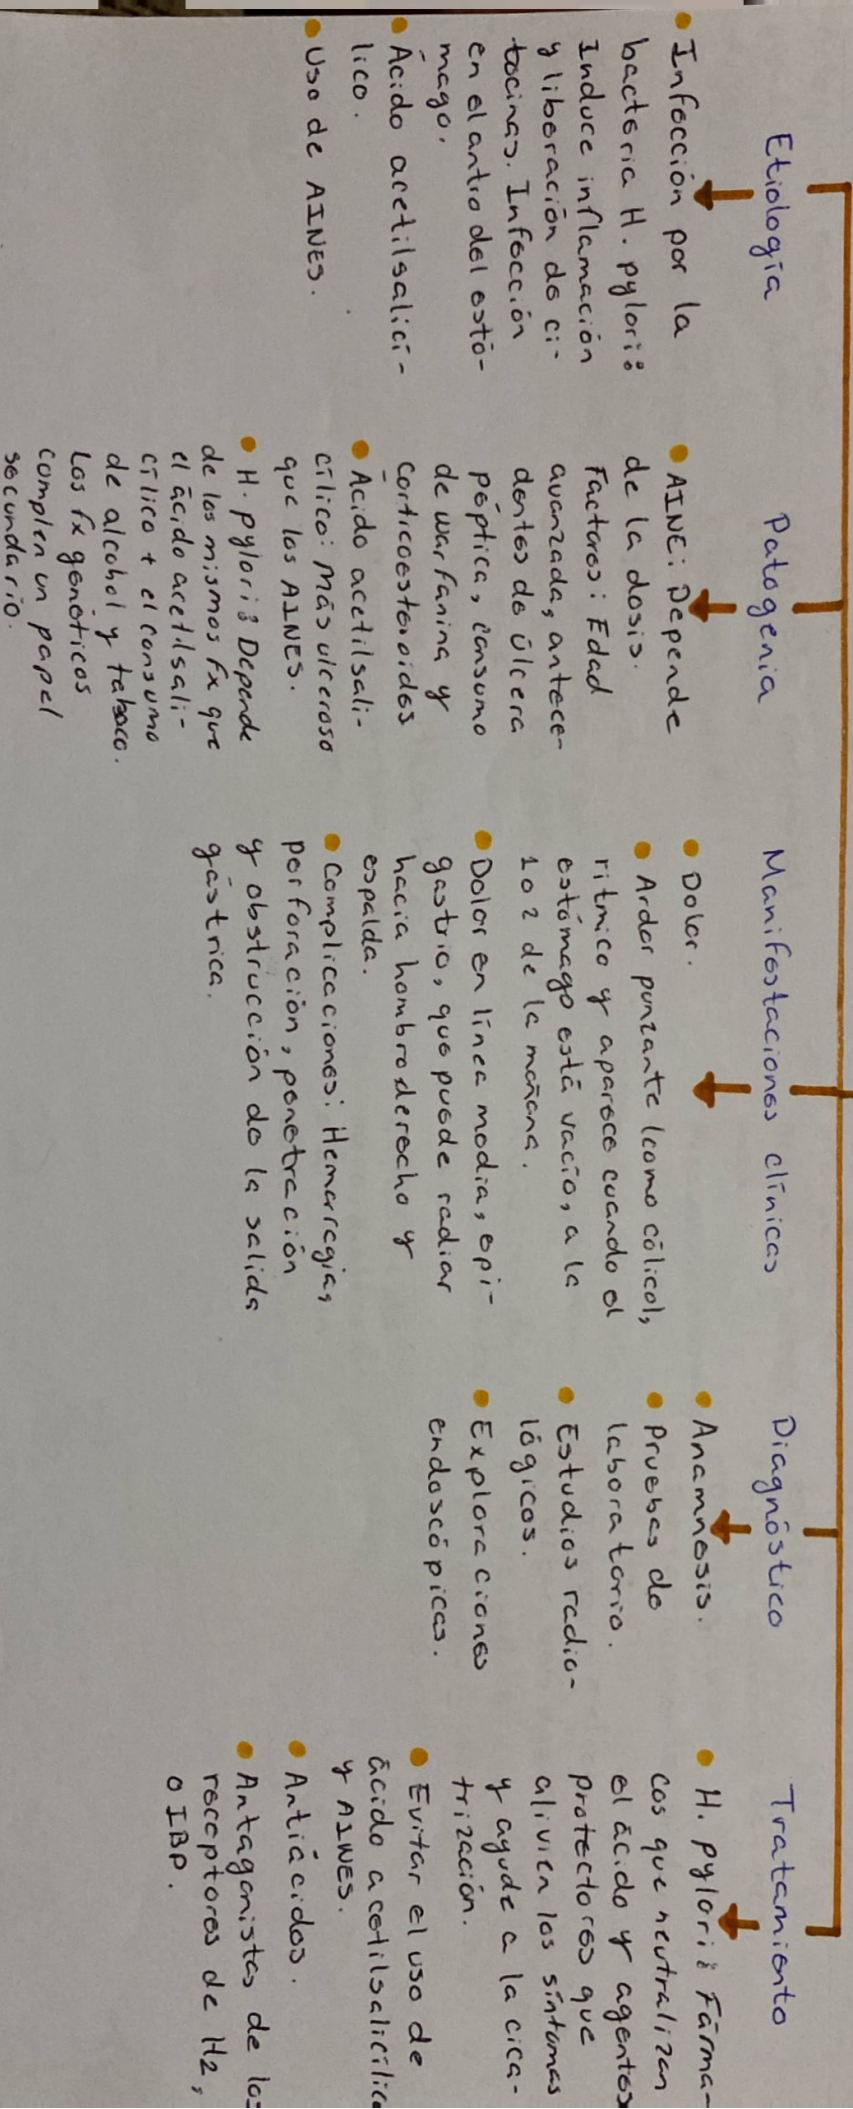 Etiología
• Infección por la
bacteria H. pylori:
Induce inflamación
y liberación de ci-
tocinas. Infección
en el antro del estó-
mago.
• Ácido acetilsalicí-
lico.
• Uso de AINES.
Patogenia
• AINE: Depende
de la dosis.
Factores: Edad
avanzada, antece-
dentes de úlcera
péptica, consumo
de warfarina y
corticoesteroides
• Ácido acetilsali-
cílico: más ulceroso
que los AINES.
• H. pylori: Depende
de los mismos fx que
el ácido acetilsali-
cílico + el consumo
de alcohol y tabaco.
Los fx genéticos
complen un papel
secundario.
Manifestaciones clínicas
• Dolor.
• Ardor punzante (como cólico),
rítmico y aparece cuando el
estómago está vacío, a la
1 o 2 de la mañana.
• Dolor en línea media, epi-
gastrio, que puede radiar
hacia hombro derecho y
espalda.
• Complicaciones: Hemorragia,
perforación, penetración
y obstrucción de la salida
gástrica.
Diagnóstico
• Anamnesis.
• Pruebas de
laboratorio.
• Estudios radio-
lógicos.
• Exploraciones
endoscópicas.
Tratamiento
• H. pylori: Fárma-
cos que neutralizan
el ácido y agentes
protectores que
alivien los síntomas
y ayude a la cica-
trización.
• Evitar el uso de
ácido acetilsalicílico
y AINES.
• Antiácidos.
• Antagonistas de los
receptores de H2,
o IBP.